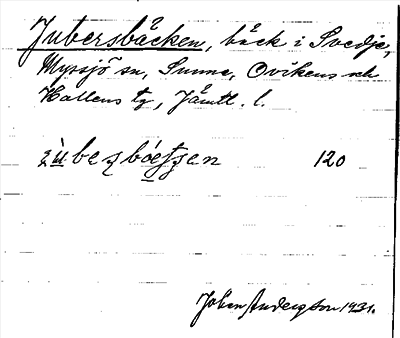 Jubersbäcken, bäck i Svedje,
Myssjö sn, Sunne, Ovikens och
Hallens tg, Jämtl. l.
120
Johan Anderson 1931.